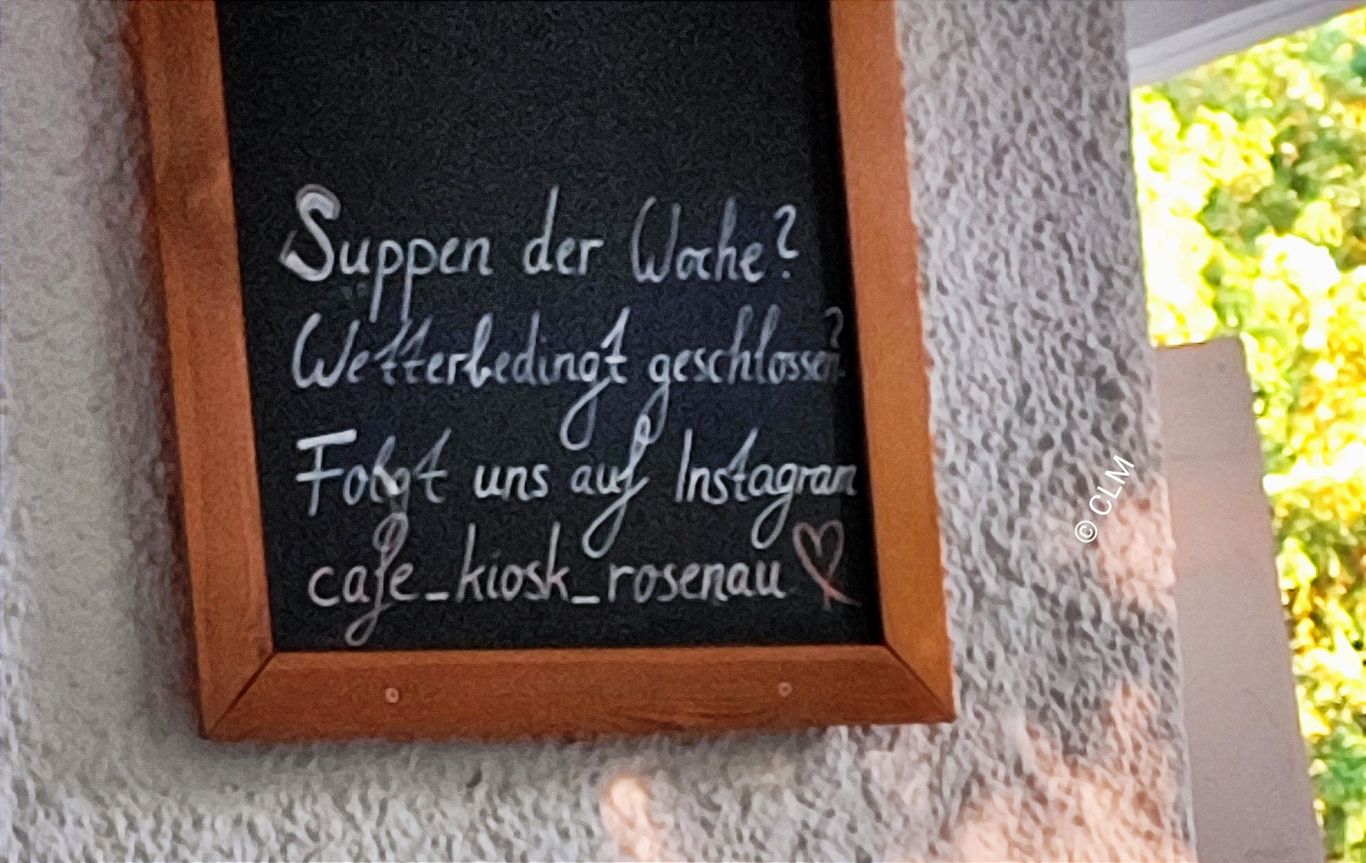 Suppen der Woche?
Wetterbedingt geschlossen?
Folgt uns auf Instagram
cafe_kiosk_rosenau
© CLM